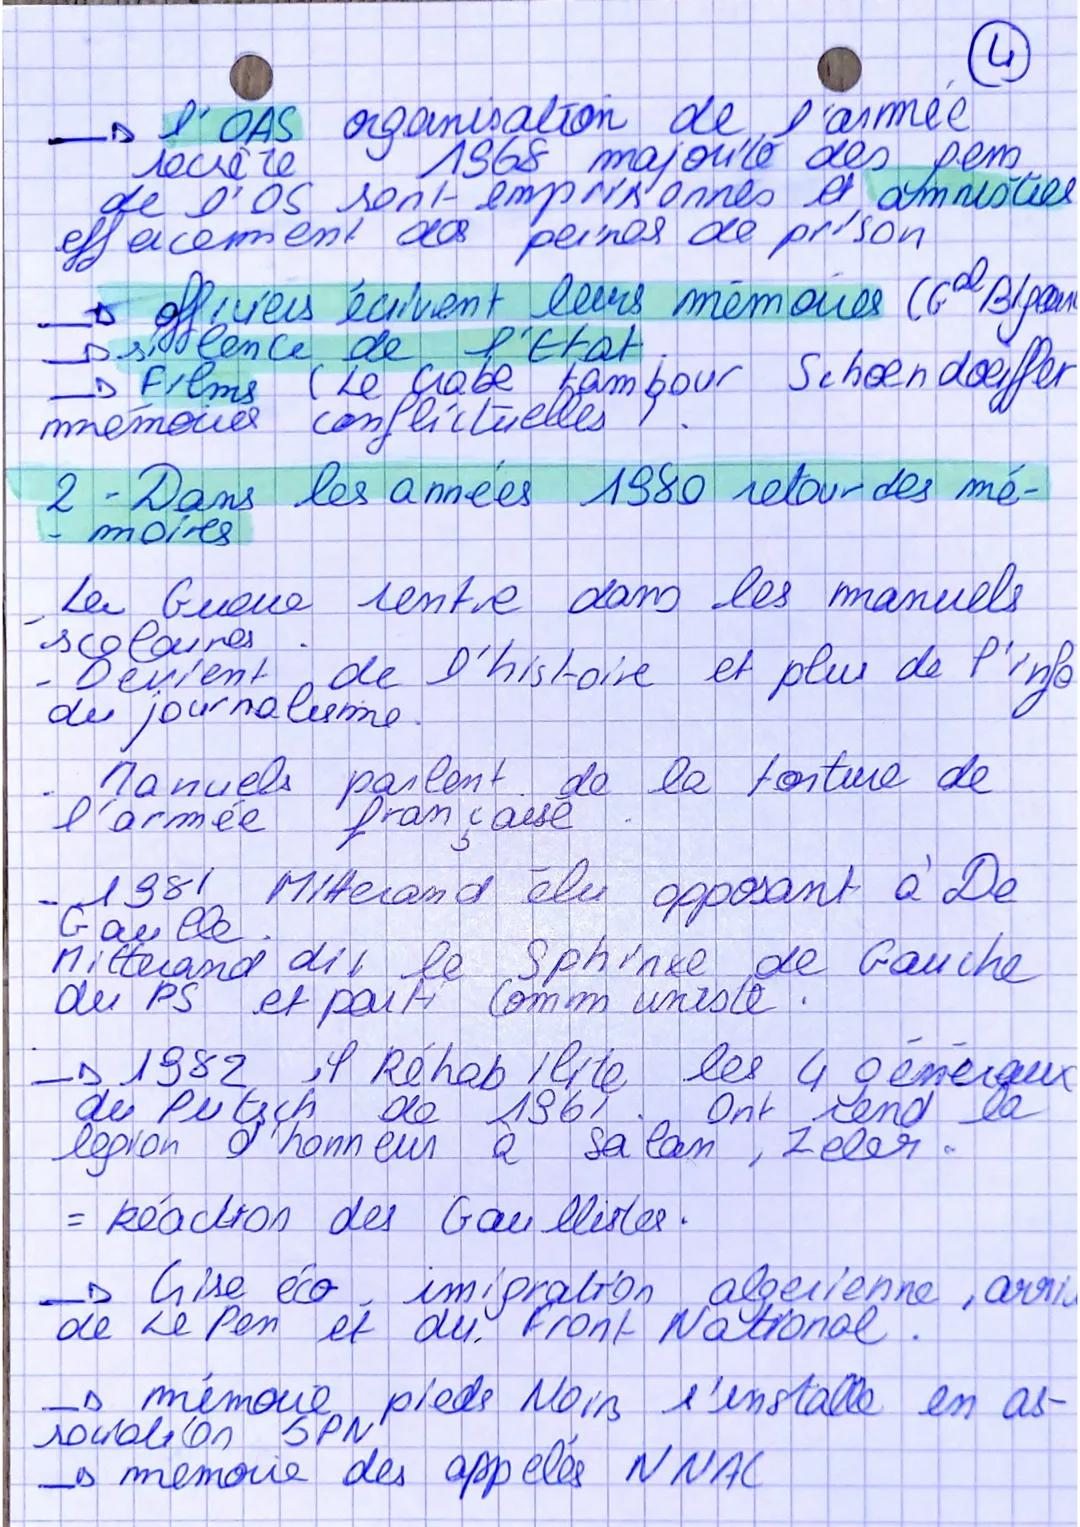 4
→ l'OAS organisation de l'armée
secrète 1968 majorité des pem
de l'OS sont emprisonnés et amnistiés
effacement des peines de prison
→ officiers écrivent leurs mémoires (Gal Bigeard
→ silence de l'Etat
→ Films (Le Crabe tambour Schoendoeffer
mémoires conflictuelles).
2 - Dans les années 1980 retour des mé-
- moires
- La Guerre rentre dans les manuels
scolaires.
- Devient de l'histoire et plus de l'info
du journalisme.
. Manuels parlent de la torture de
l'armée française.
- 1981 Mitterand élu opposant à De
Gaulle.
Mitterand dit le Sphinxe de Gauche
du PS et parti Communiste.
→ 1982 il Réhabilite les 4 généraux
du Putsch de 1961. Ont rend la
légion d'honneur à Salan, Zeler.
= Réaction des Gaullistes.
→ Crise éco, imigration algerienne, arriv
de Le Pen et du Front National.
→ mémoire pieds Noirs s'installe en as-
sociation SPN
→ mémoire des appelés NNAC